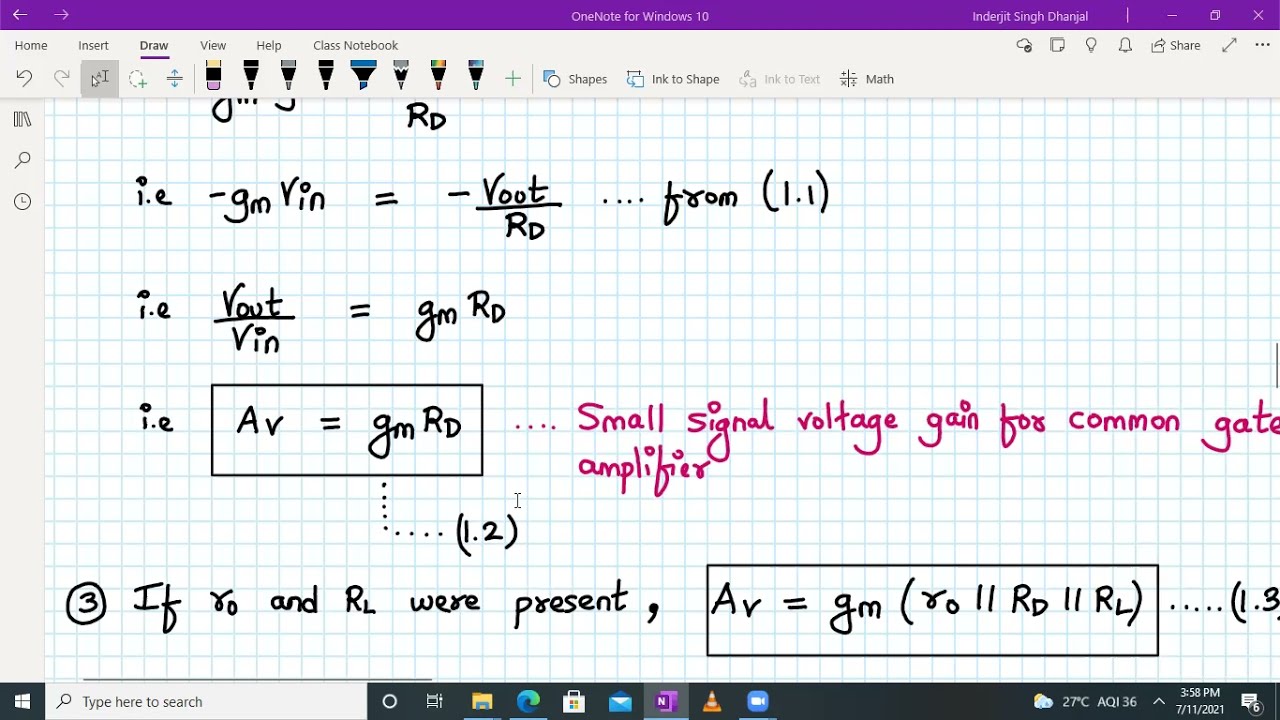 OneNote for Windows 10
Inderjit Singh Dhanjal
Home Insert Draw View Help Class Notebook
Share
Shapes Ink to Shape Ink to Text Math
gm
RD
i.e -gm Vin = - Vout / RD .... from (1.1)
i.e Vout / Vin = gm RD
i.e Av = gm RD .... Small signal voltage gain for common gate
amplifier
..... (1.2)
③ If ro and RL were present, Av = gm (ro || RD || RL) ..... (1.3
Type here to search
27°C AQI 36
3:58 PM
7/11/2021
6